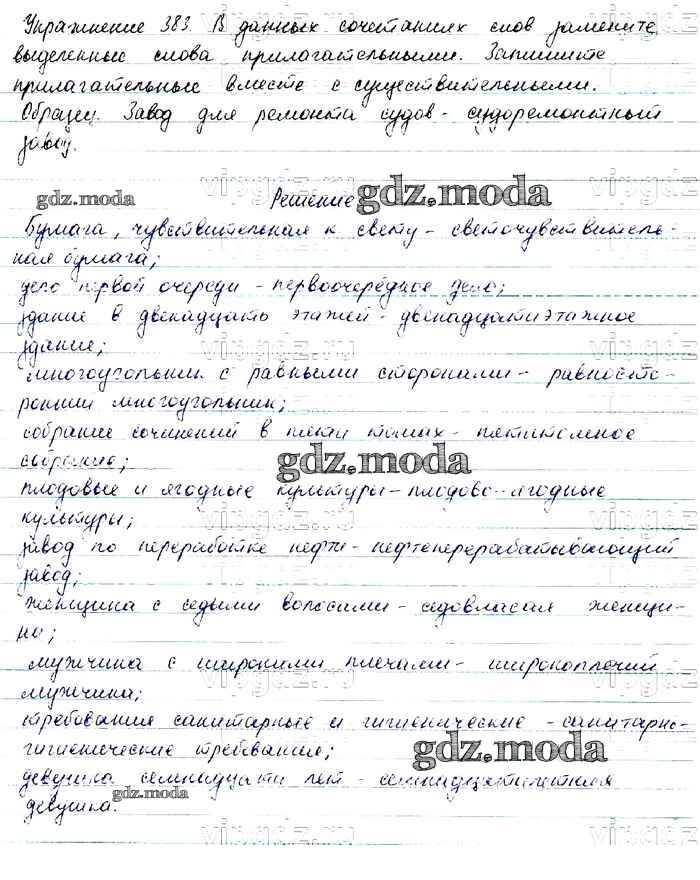 Упражнение 383. В данных сочетаниях слов замените
выделенные слова прилагательными. Запишите
прилагательные вместе с существительными.
Образец. Завод для ремонта судов - судоремонтный
завод.
gdz.moda
virgdz.ru
Решение
gdz.moda
Бумага, чувствительная к свету - светочувствитель-
ная бумага;
дело первой очереди - первоочередное дело;
здание в двенадцать этажей - двенадцатиэтажное
здание;
virgdz.ru
многоугольник с равными сторонами - равносто-
ронний многоугольник;
собрание сочинений в пяти томах - пятитомное
собрание;
gdz.moda
плодовые и ягодные культуры - плодово-ягодные
культуры;
virgdz.ru
завод по переработке нефти - нефтеперерабатывающий
завод;
женщина с седыми волосами - седовласая женщи-
на;
мужчина с широкими плечами - широкоплечий
мужчина;
virgdz.ru
требования санитарные и гигиенические - санитарно-
гигиенические требования;
gdz.moda
девушка семнадцати лет - семнадцатилетняя
девушка.
gdz.moda
virgdz.ru